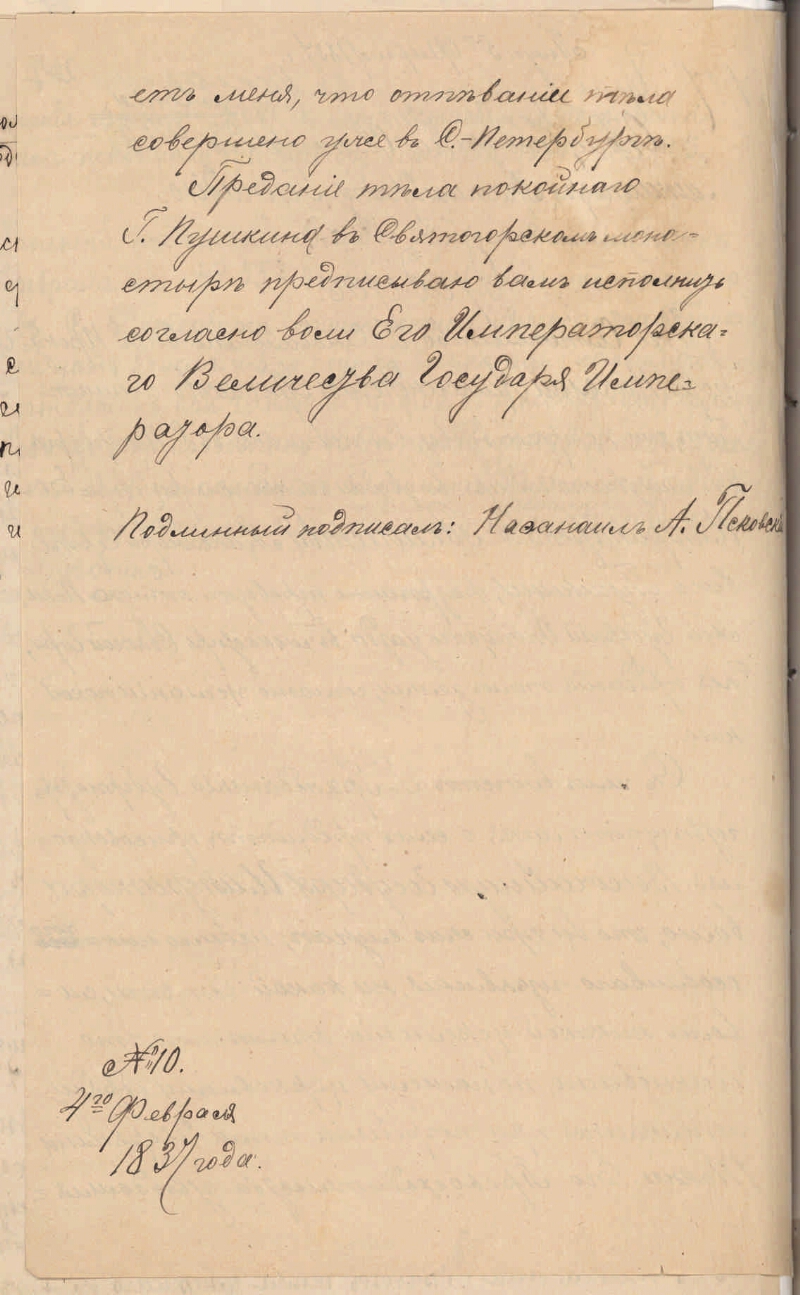 етъ меня, что отпѣваніе тѣла
совершено уже въ С.-Петербургѣ.
Преданіе тѣла покойнаго
Г. Пушкина въ Святогорскомъ мона-
стырѣ предписываю вамъ исполнить
согласно воли Его Императорска-
го Величества Государя Импе-
ратора.
Подлинный подписалъ: Наѳанаилъ А. Псковскі
№ 10.
4го Февраля
1837 года.